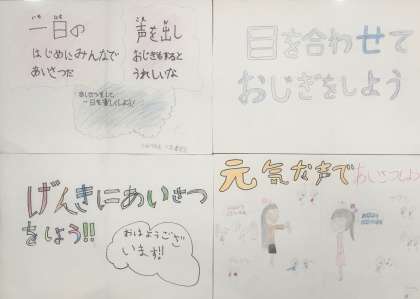 一日の
はじめにみんなで
あいさつだ
声を出し
おじぎもすると
うれしいな
あいさつをして、
一日を楽しくしよう!
目を合わせて
おじぎをしよう
げんきにあいさつ
をしよう!!
おはようござ
います!!
元気な声で
あいさつしよう